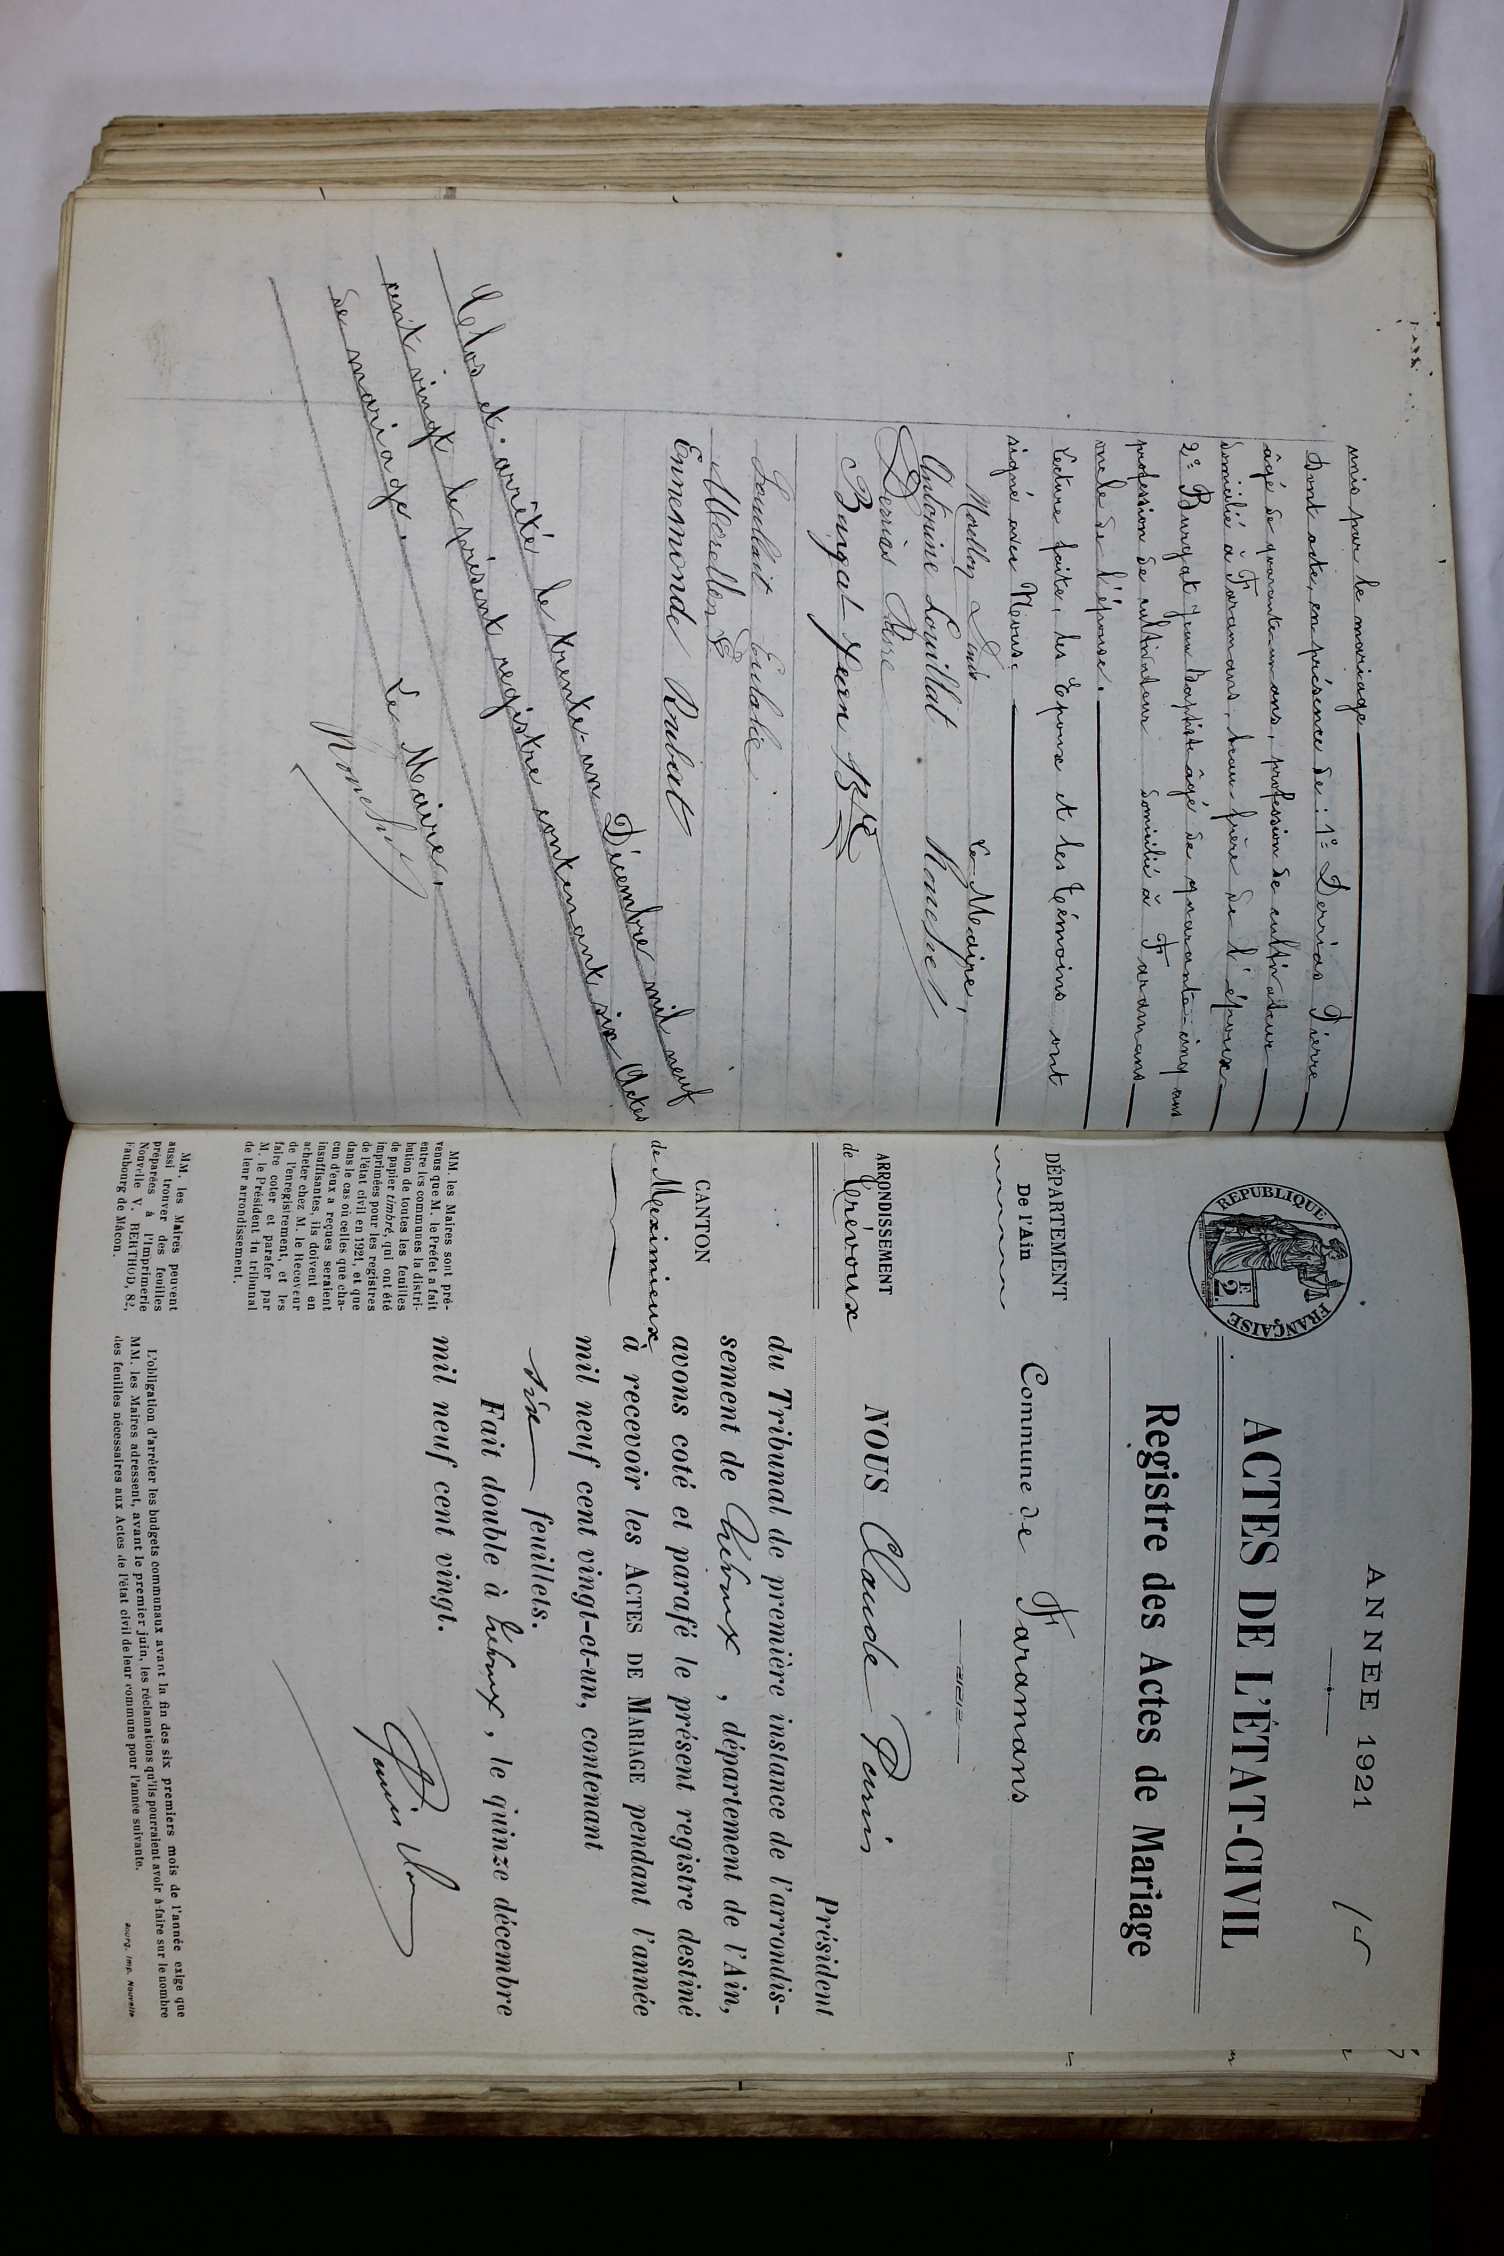 unis par le mariage
Dont acte, en présence de : 1º Derrias Pierre
âgé de quarante-un ans, profession de cultivateur
domicilié à Faramans, beau frère de l'époux
2º Burgat Jean Baptiste âgé de quarante-cinq ans
profession de cultivateur domicilié à Faramans
oncle de l'épouse.
Lecture faite, les Epoux et les témoins ont
signé avec Nous.
Le Maire,
Antoinine Louillat
Derrias Pierre
Burgat Jean Bte
Eulalie
Morellon
Ennemonde Rabat
Clos et arrêté le trente-un Décembre mil neuf
cent vingt le présent registre contenant six Actes
de mariage.
Le Maire,
ANNÉE 1921
15
REPUBLIQUE FRANÇAISE
2 F.
ACTES DE L'ÉTAT-CIVIL
Registre des Actes de Mariage
DÉPARTEMENT
De l'Ain
Commune de Faramans
ARRONDISSEMENT
de Trévoux
CANTON
de Meximieux
NOUS Claude Perrin
Président
du Tribunal de première instance de l'arrondis-
sement de Trévoux, département de l'Ain,
avons coté et parafé le présent registre destiné
à recevoir les ACTES DE MARIAGE pendant l'année
mil neuf cent vingt-et-un, contenant
six feuillets.
Fait double à Trévoux, le quinze décembre
mil neuf cent vingt.
MM. les Maires sont pré-
venus que M. le Préfet a fait
entre les communes la distri-
bution de toutes les feuilles
de papier timbré, qui ont été
imprimées pour les registres
de l'état civil en 1921, et que
dans le cas où celles que cha-
cun d'eux a reçues seraient
insuffisantes, ils doivent en
acheter chez M. le Receveur
de l'enregistrement, et les
faire coter et parafer par
M. le Président du tribunal
de leur arrondissement.
MM. les Maires peuvent
aussi trouver des feuilles
préparées à l'Imprimerie
Nouvelle V. BERTHOD, 82,
Faubourg de Mâcon.
L'obligation d'arrêter les budgets communaux avant la fin des six premiers mois de l'année exige que
MM. les Maires adressent, avant le premier juin, les réclamations qu'ils pourraient avoir à faire sur le nombre
des feuilles nécessaires aux Actes de l'état civil de leur commune pour l'année suivante.
Bourg, Imp. Nouvelle